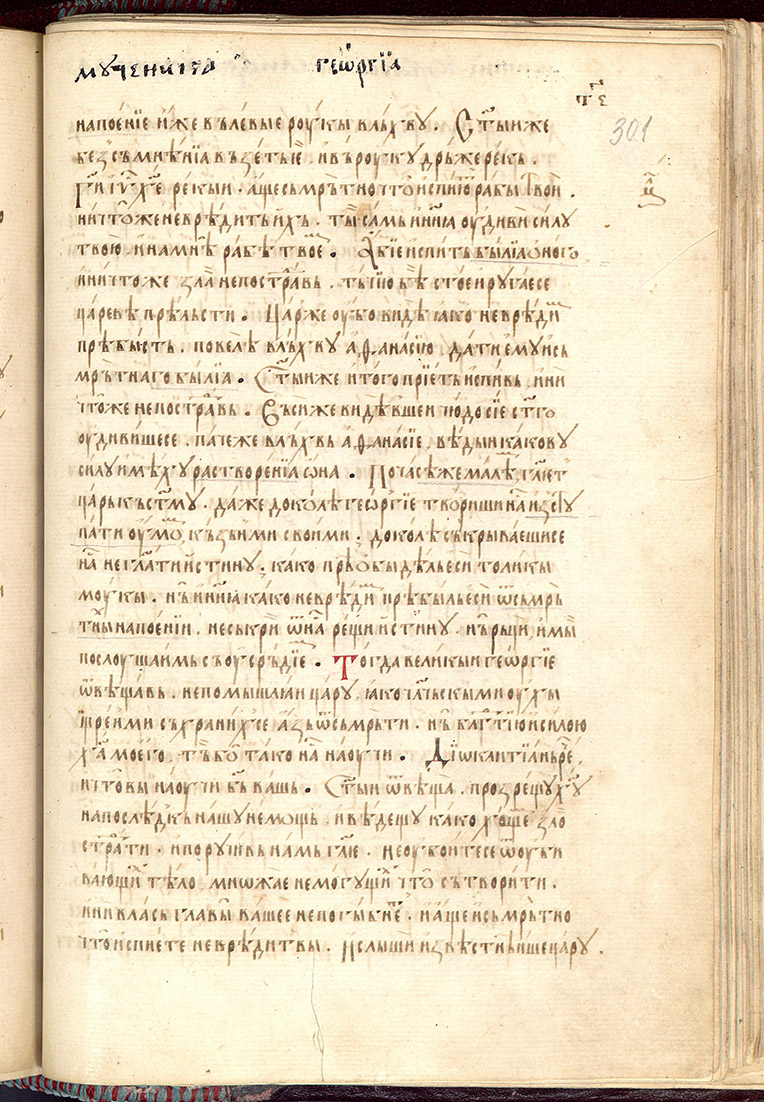 мꙋ́ченїе геѡ́ргїа
301
напое́нїе и́же въ лѣ́вые рꙋкы влъ́хвꙋ . Ст҃ы и҆же
без съмнѣ́нїа въ зе́ть е , и҆ въ рꙋ́кꙋ дръ́же ре́кь .
Гѝ і҆у҃ х҃е рекы́и . а҆́ще съмрътно что̀ и҆спїю́т рабы̀ твои̏ .
ничто́же не врѣ́дить и҆́хъ . ты̀ са́мь и҆ нн҃ꙗ оу҆диви̏ си́лꙋ
твою̀ и҆ на мнѣ̀ рабѣ̀ твоем . А҆́бїе и҆спи́ть бы́лїа о҆ного
и҆ ничто́же зла̀ не постра́вь .
царевѣ̀ прѣ́льсти . Ца́р же оу҆́бо ви́дѣ ꙗ҆́ко не врѣди́м
прѣ́бысть . повелѣ̀ влъ́хвꙋ а҆ѳана́сїю , да́ти е҆мꙋ̀ и҆ сь
мрътнаго бы́лїа . Ст҃ы и҆же и҆ того̀ прїе́ть и҆спи́вь , и҆ ни
что́же не постра́вь . Въ́си же ви́дѣвшеи чю́до сїѐ ст҃го
оу҆диви́шесе , па́че же влъ́хвь а҆ѳана́сїе , вѣ́ды и҆ каковꙋ
си́лꙋ и҆мѣ́хꙋ растворе́нїа ѡ҆на . По часѣ́ же ма́лѣм гл҃ет
ца́рь къ ст҃мꙋ . да́же доко́лѣ геѡ́ргїе твори́ши на̀ и҆зстꙋ
па́ти оу҆мо́м къ́зньми своими . доко́лѣ съкрыва́ешисе
на̀ не гл҃ати и҆́стинꙋ . ка́ко прѣѡбы́дѣль е҆си̏ толи́кы
мꙋ́кы . нъ̀ и҆ нн҃ꙗ ка́ко не врѣди́м прѣ́быль е҆си̏ ѿ съмръ
тны́х напое́нїи . не съкрїи ѿ на̀ рещи и҆́стинꙋ . нъ̀ рьци̏ и҆ мы̀
послꙋ́шаимь съ оусръ́дїем . Тогда̀ вели́кыи геѡ́ргїе
ѿвѣща́вь . не помышлꙗ́и ца́рꙋ , ꙗ҆́ко чл҃чьскыми оу҆хы
щрен́ми съхрани́хсе а҆́зь ѿ съмръ́ти . нъ̀ бл҃г҃тїю и҆ си́лою
х҃а моего̀ , тъ̀ бо та́ко на̀ наоу҆чи . Дїѡклитїа́нь рече ,
и҆ что̀ вы наоу҆чи бъ̀ вашь . Ст҃ы ѿвѣща , прозре́щꙋ х҃ꙋ
на послѣ́дкь на́шꙋ не́мощь , и҆ вѣ́дещꙋ ка́ко хо́щем зло̀
стра́ти . и҆ порꙋ́чивь на́мь гл҃е . не оу҆бои́тесе ѿ оу҆би
ва́ющи́х тѣ́ло , мнѡжае не могꙋ́щи́х что̀ сътвори́ти .
ни влась главы̀ ва́шее не погы́бнет . и҆ а҆́ще и҆ съмрътно
что̀ и҆спїе́те не врѣди́т вы . И҆ слы́ши и҆звѣ́стнѣише ца́рꙋ .